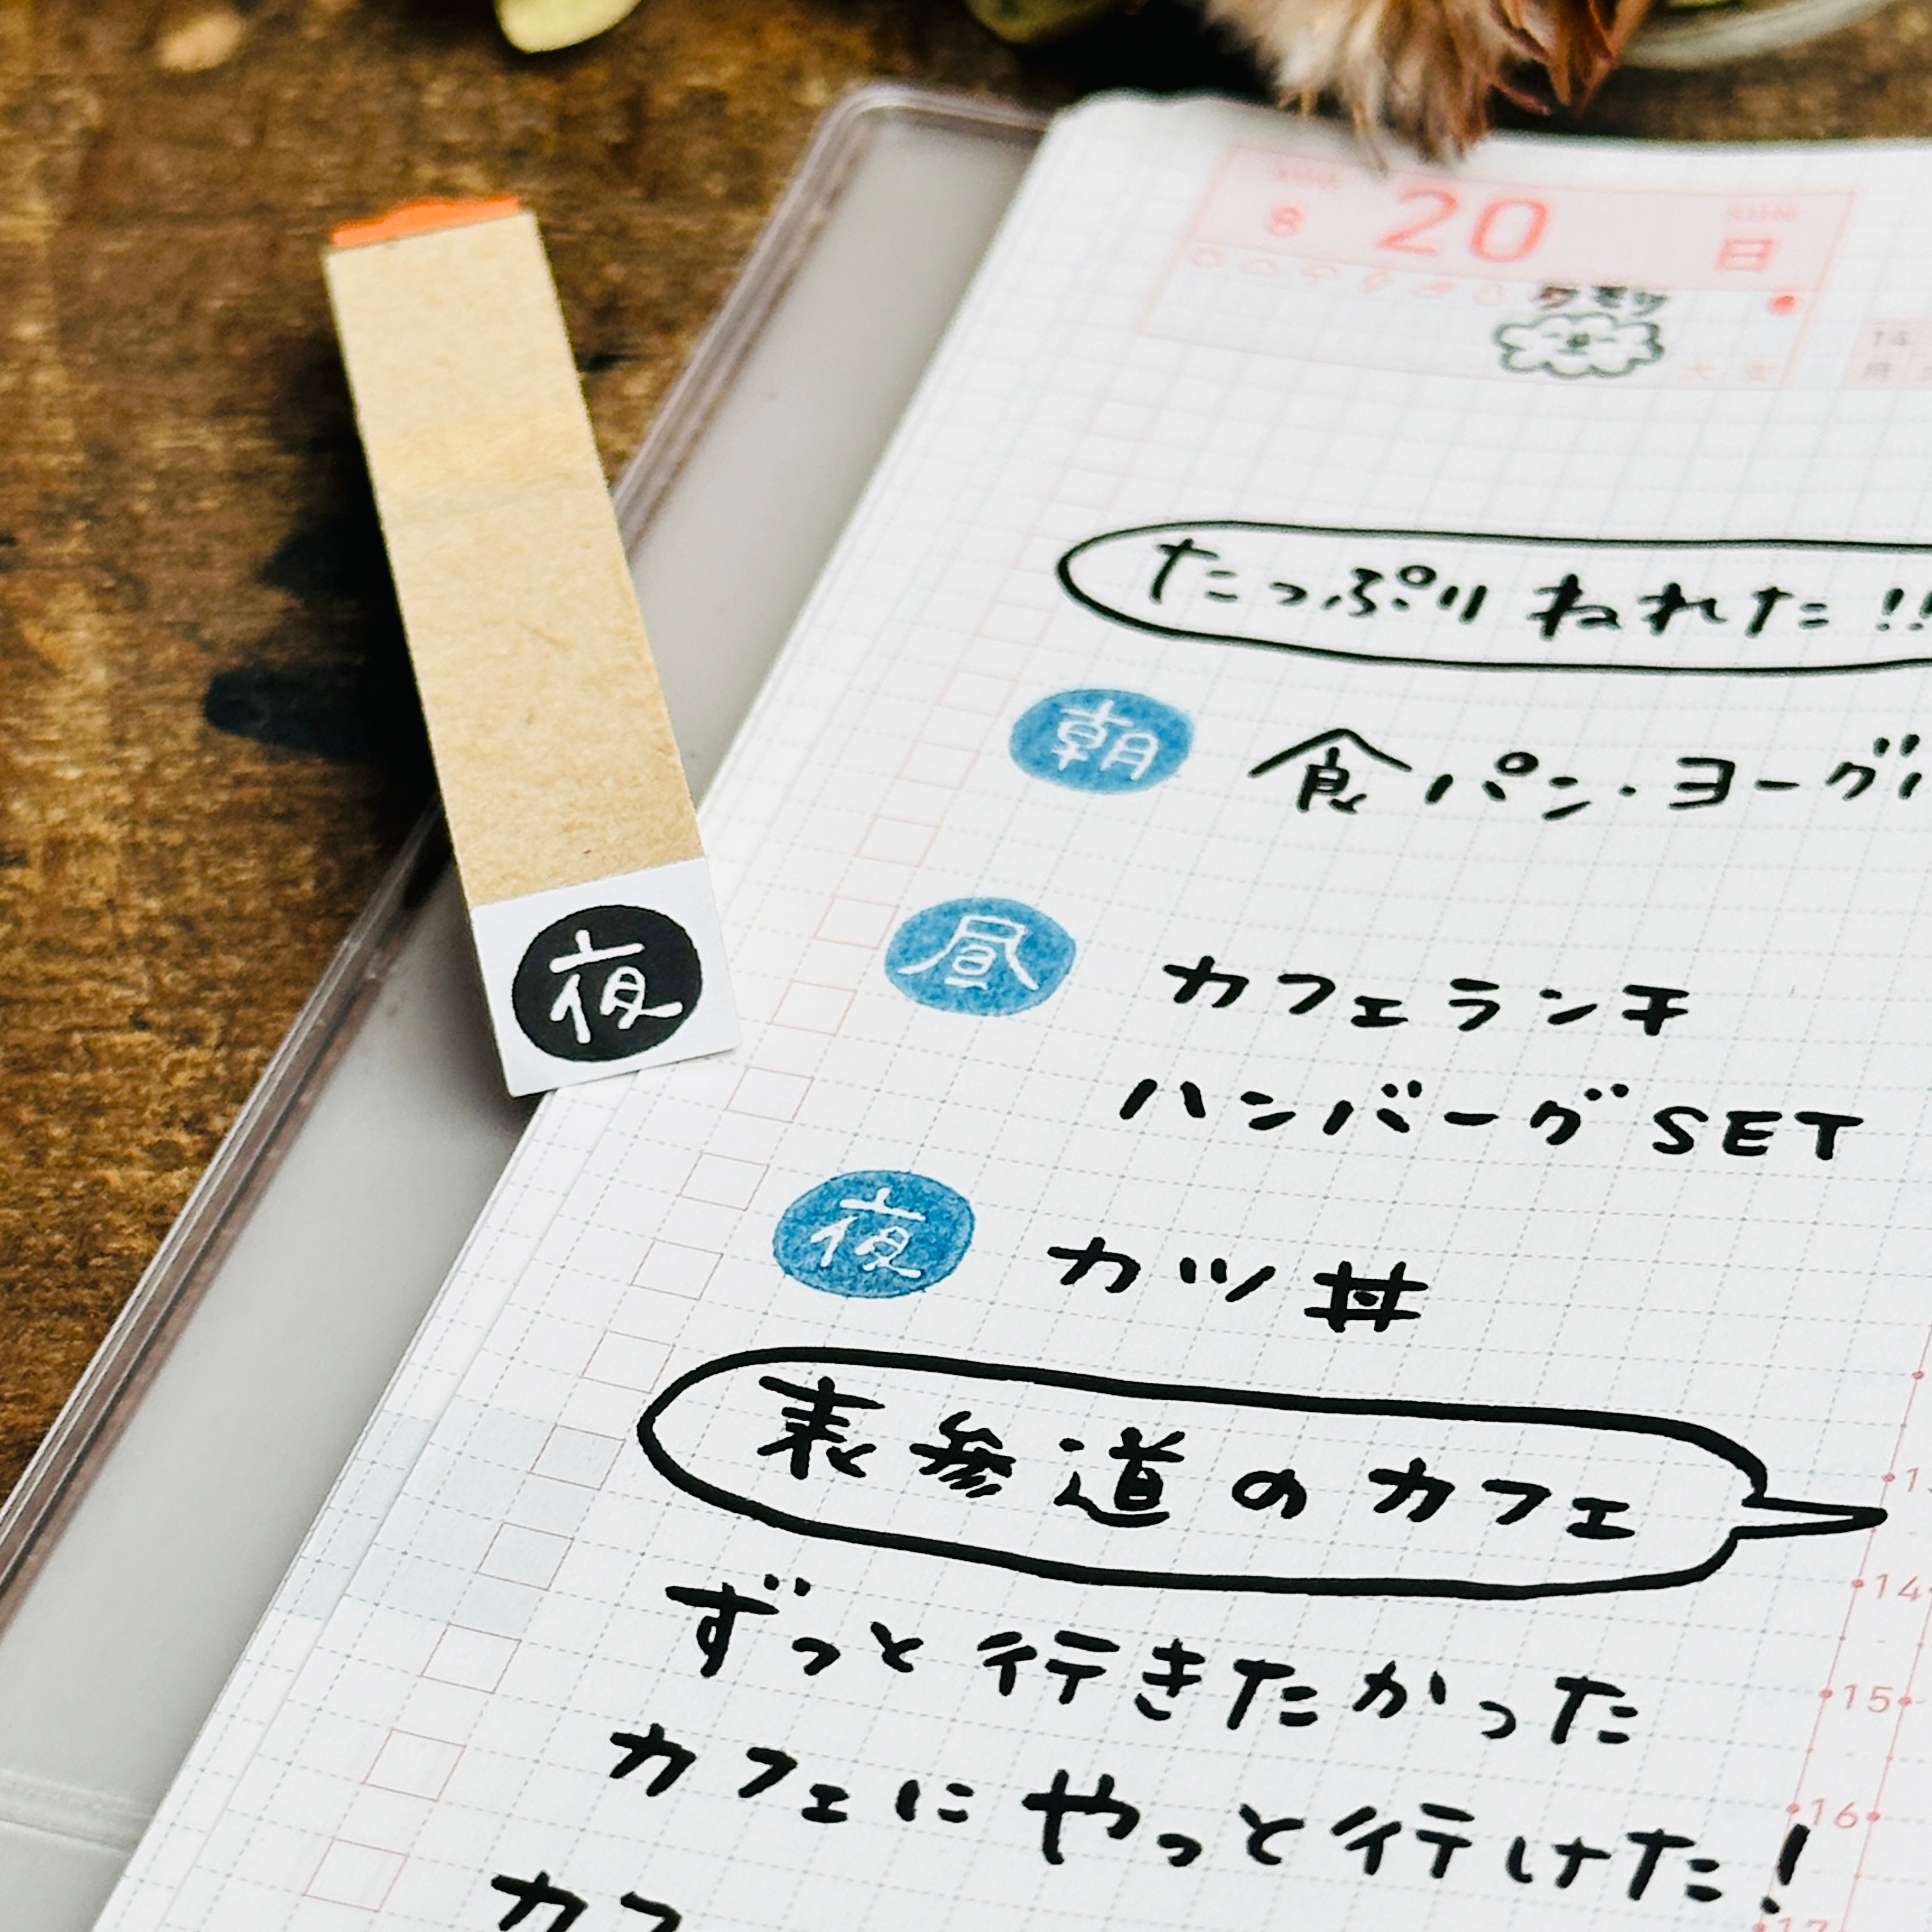 8 20 日
SUN
クモリ
大安
14
月
たっぷり ねれた!!
朝 食パン・ヨーグ
昼 カフェランチ
ハンバーグ SET
夜
夜 カツ丼
表参道のカフェ
ずっと行きたかった
14
15
カフェにやっと行けた!
16
カフ
17